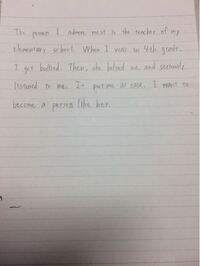 The person I admire most is the teacher of my
elementary school. When I was in 4th grade,
I got bullied. Then, she helped me and seriously
listened to me. It put me at ease. I want to
become a person like her.